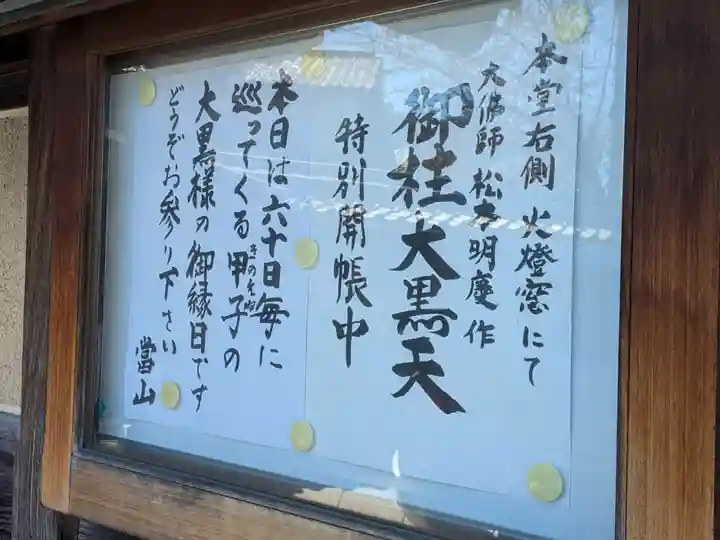 本堂右側 火燈窓にて
大佛師 松本明慶作
御柱大黒天
特別開帳中
本日は六十日毎に
巡ってくる甲子の
きのえね
大黒様の御縁日です
どうぞお参り下さい
當山